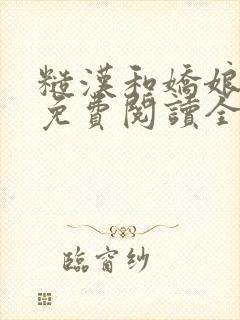 糙漢和嬌娘
免費閱讀全
臨窗紗